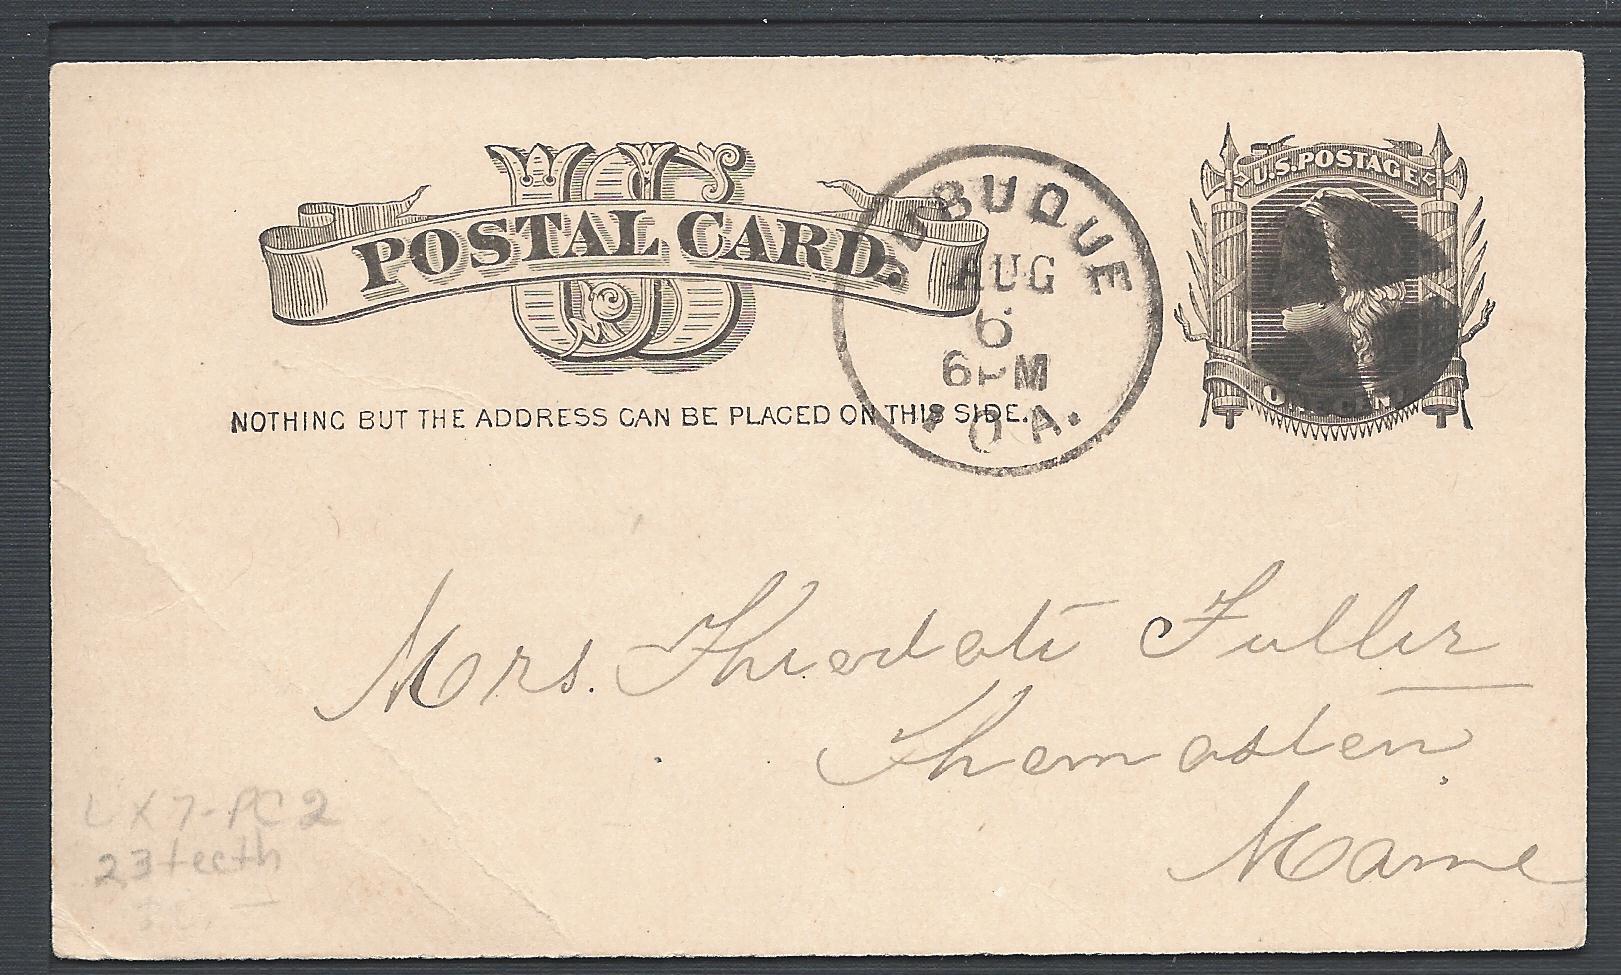 US
POSTAL CARD.
NOTHING BUT THE ADDRESS CAN BE PLACED ON THIS SIDE.
DUBUQUE
AUG
6
6PM
IOA.
U.S. POSTAGE
ONE CENT
Mrs. Theodate Fuller
Thomaston
Maine
UX7-PC2
23 teeth